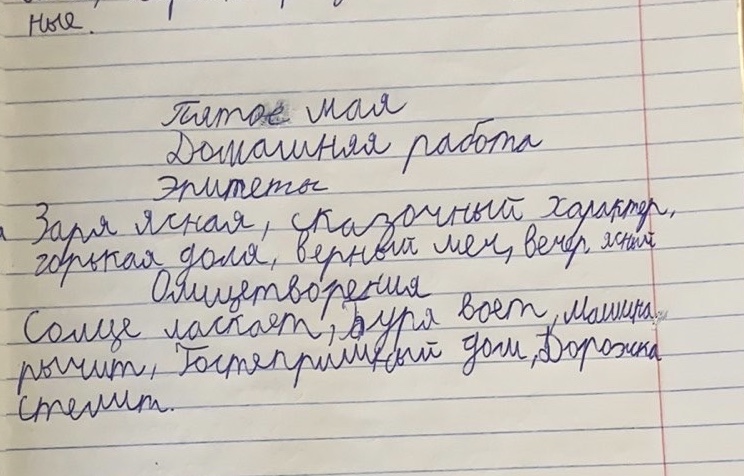 ные.
Пятое мая
Домашняя работа
Эпитеты
Заря ясная, сказочный характер,
горькая доля, верный меч, вечер ясный
Олицетворения
Солце ласкает, Буря воет, Машина
рычит, Гостеприимный дом, Дорожка
стелит.